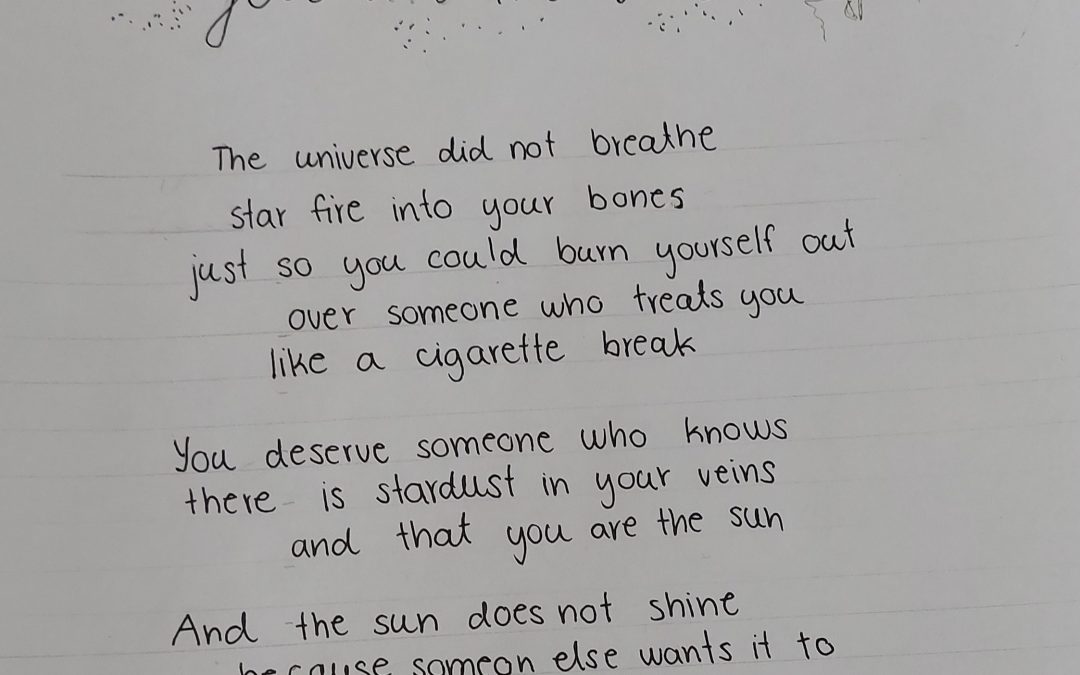 The universe did not breathe
star fire into your bones
just so you could burn yourself out
over someone who treats you
like a cigarette break
You deserve someone who knows
there is stardust in your veins
and that you are the sun
And the sun does not shine
because someon else wants it to